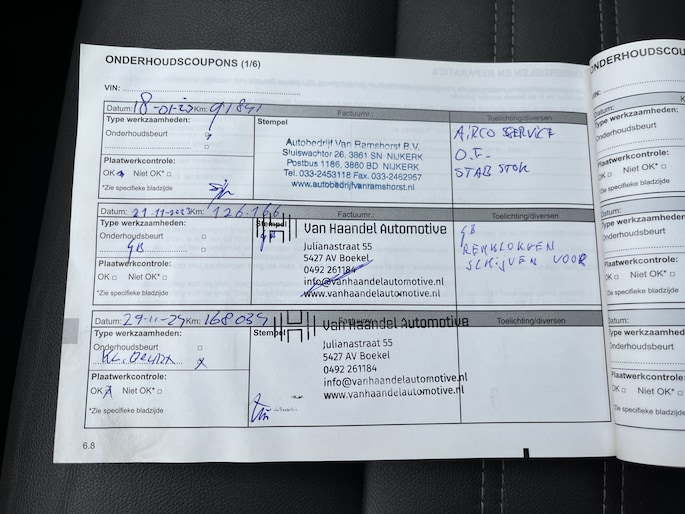 ONDERHOUDSCOUPONS (1/6)
VIN:
Datum: 18-01-23 Km: 91841 Factuurnr.: Toelichting/diversen
Type werkzaamheden:
Onderhoudsbeurt
Stempel
Autobedrijf Van Ramshorst B.V.
Sluiswachter 26, 3861 SN NIJKERK
Postbus 1186, 3860 BD NIJKERK
Tel. 033-2453118 Fax. 033-2462957
www.autobedrijfvanramshorst.nl
AIRCO SERVICE
O.F.
STABSTOK
Plaatwerkcontrole:
OK Niet OK*
*Zie specifieke bladzijde
Datum: 21-11-2023 Km: 126.166 Factuurnr.: Toelichting/diversen
Type werkzaamheden:
Onderhoudsbeurt
GB
Stempel
GB
Van Haandel Automotive
Julianastraat 55
5427 AV Boekel
0492 261184
info@vanhaandelautomotive.nl
www.vanhaandelautomotive.nl
GB
REMBLOKKEN
SCHIJVEN VOOR
Plaatwerkcontrole:
OK Niet OK*
*Zie specifieke bladzijde
Datum: 29-11-24 Km: 168039 Toelichting/diversen
Type werkzaamheden:
Onderhoudsbeurt
KL. BEURT x
Stempel
Van Haandel Automotive
Julianastraat 55
5427 AV Boekel
0492 261184
info@vanhaandelautomotive.nl
www.vanhaandelautomotive.nl
Plaatwerkcontrole:
OK Niet OK*
*Zie specifieke bladzijde
6.8
ONDERHOUDSCOU
VIN:
Datum:
Type werkzaamheden:
Onderhoudsbeurt
Plaatwerkcontrole:
OK Niet OK*
*Zie specifieke bladzijde
Datum:
Type werkzaamheden:
Onderhoudsbeurt
Plaatwerkcontrole:
OK Niet OK*
*Zie specifieke bladzijde
Datum:
Type werkzaamheden:
Onderhoudsbeurt
Plaatwerkcontrole:
OK Niet OK*
*Zie specifieke bladzijde